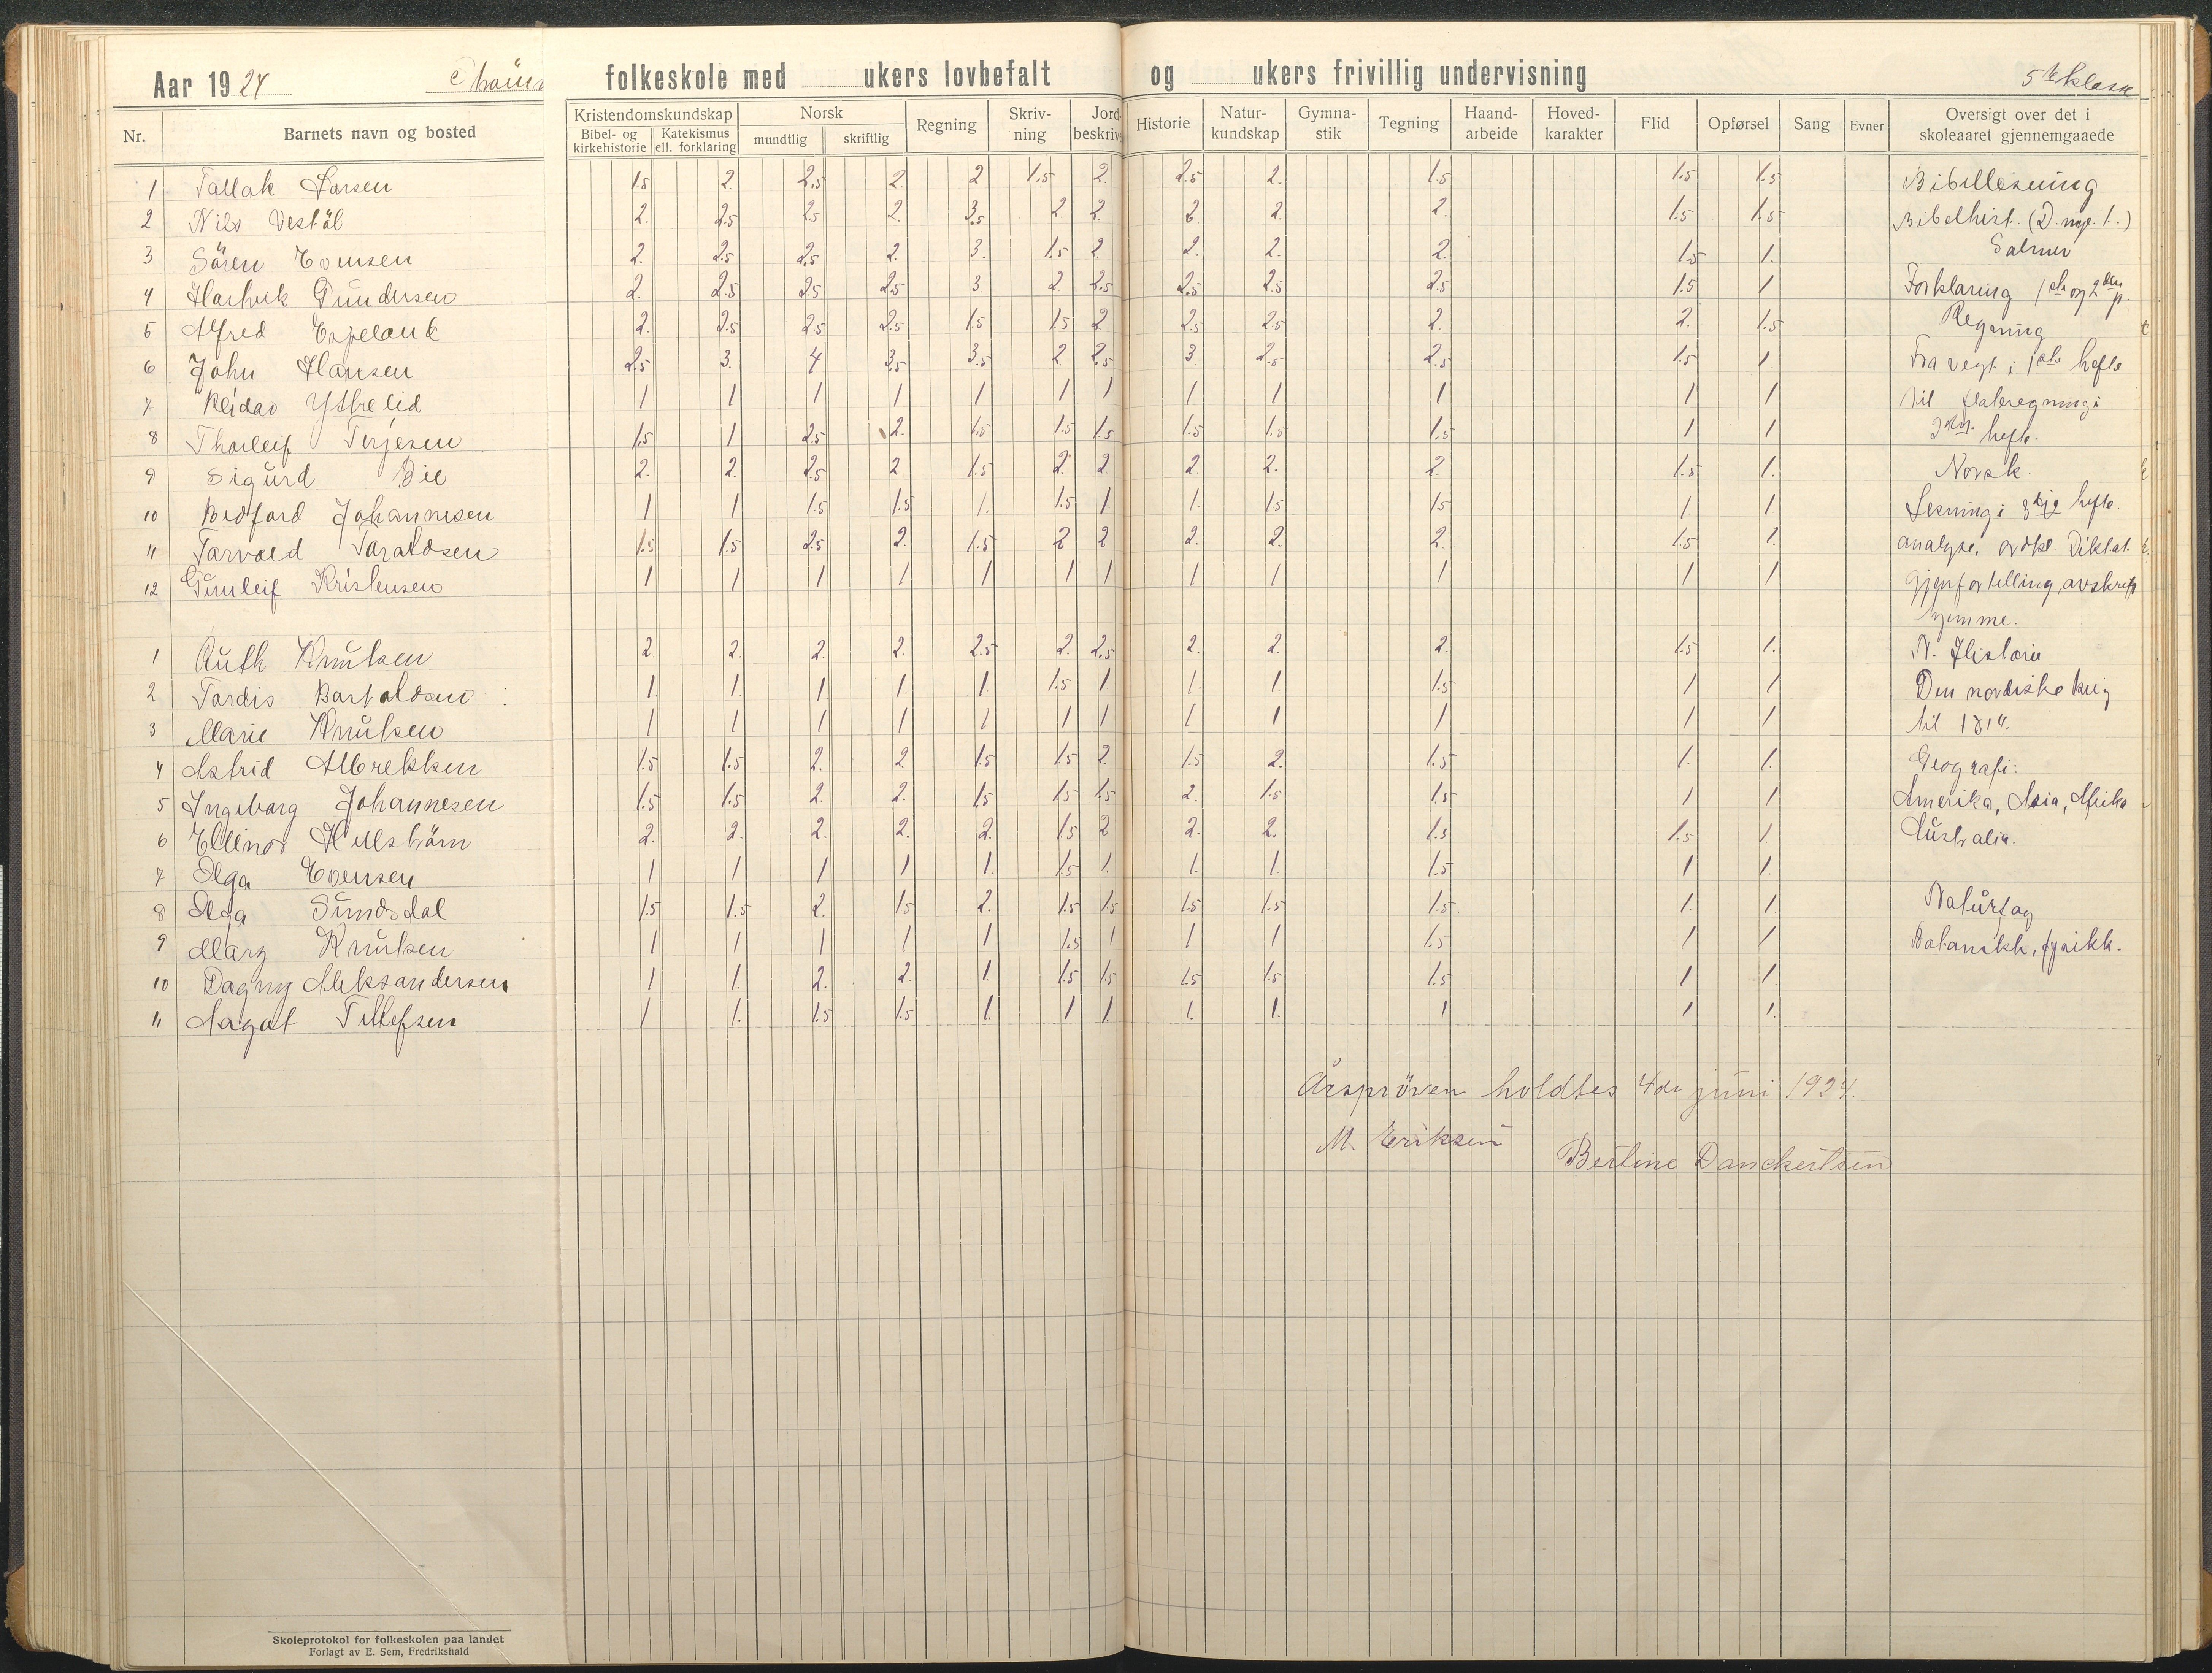 Aar 1924 folkeskole med ukers lovbefalt og ukers frivillig undervisning 5te klasse
Nr. Barnets navn og bosted Kristendomskundskap Bibel- og kirkehistorie Katekismus ell. forklaring Norsk mundtlig skriftlig Regning Skriv-ning Jord-beskriv Historie Natur-kundskap Gymna-stik Tegning Haand-arbeide Hoved-karakter Flid Opførsel Sang Evner Oversigt over det i skoleaaret gjennemgaaede
1 Tallak Larsen 1.5 2. 2.5 2. 2 1.5 2. 2.5 2. 1.5 1.5 1.5 Bibellesning
2 Nils Vestöl 2. 2.5 2.5 2. 3.5 2 2. 2 2. 2. 1.5 1.5 Bibelhist. (D. nye. t.)
3 Sören Evensen 2. 2.5 2.5 2. 3. 1.5 2. 2. 2. 2. 1.5 1. Salmer
4 Hartvik Gundersen 2. 2.5 2.5 2.5 3. 2 2.5 2.5 2.5 2.5 1.5 1 Forklaring 1ste og 2den p.
5 Alfred Espeland 2. 2.5 2.5 2.5 1.5 1.5 2 2.5 2.5 2. 2. 1.5 Regning
6 John Hansen 2.5 3. 4 3.5 3.5 2 2.5 3 2.5 2.5 1.5 1. Fra vegt i 1ste hefte
7 Reidar Ytrelid 1 1 1 1 1 1 1 1 1 1 1 1 til flateregning i
8 Thorleif Terjesen 1.5 1 2.5 2. 1.5 1.5 1.5 1.5 1.5 1.5 1 1 hefte.
9 Sigurd Bie 2. 2. 2.5 2 1.5 2. 2. 2. 2. 2. 1.5 1. Norsk.
10 Bedford Johannesen 1 1 1.5 1.5 1. 1.5 1 1. 1.5 1.5 1 1 Lesning i 3dje hefte.
11 Torvald Taraldsen 1.5 1.5 2.5 2. 1.5 2 2 2. 2. 2. 1.5 1. analyse, ordkl. Diktat.
12 Gunleif Kristensen 1 1 1 1 1 1 1 1 1 1 1 1 Gjenfortelling, avskrift
hjemme.
1 Ruth Knutsen 2. 2. 2. 2. 2.5 2. 2.5 2. 2. 2. 1.5 1. N. Historie
2 Tordis Bartoldsen 1. 1. 1. 1. 1. 1.5 1 1. 1. 1.5 1 1 Den nordiske krig
3 Marie Knutsen 1 1 1 1 1 1 1 1 1 1 1 1 til 1814.
4 Astrid Albrektsen 1.5 1.5 2. 2. 1.5 1.5 2. 1.5 2. 1.5 1. 1. Geografi:
5 Ingeborg Johannesen 1.5 1.5 2. 2. 1.5 1.5 1.5 2. 1.5 1.5 1 1 Amerika, Asia, Afrika
6 Ellinor Hellström 2. 2. 2. 2. 2. 1.5 2 2. 2. 1.5 1.5 1. Australia.
7 Olga Evensen 1 1 1 1 1. 1.5 1. 1. 1. 1.5 1 1.
8 Olga Sundsdal 1.5 1.5 2. 1.5 2. 1.5 1.5 1.5 1.5 1.5 1. 1. Naturfag
9 Mary Knutsen 1 1 1 1 1 1.5 1 1 1 1.5 1 1 Botanikk, fysikk.
10 Dagny Aleksandersen 1 1. 2. 2. 1. 1.5 1.5 1.5 1.5 1.5 1 1.
11 Aagot Tellefsen 1 1. 1.5 1.5 1. 1 1. 1. 1. 1 1 1.
Årspröven holdtes 4de juni 1924.
M. Eriksen
Bertine Danckertsen
Skoleprotokol for folkeskolen paa landet
Forlagt av E. Sem, Fredrikshald